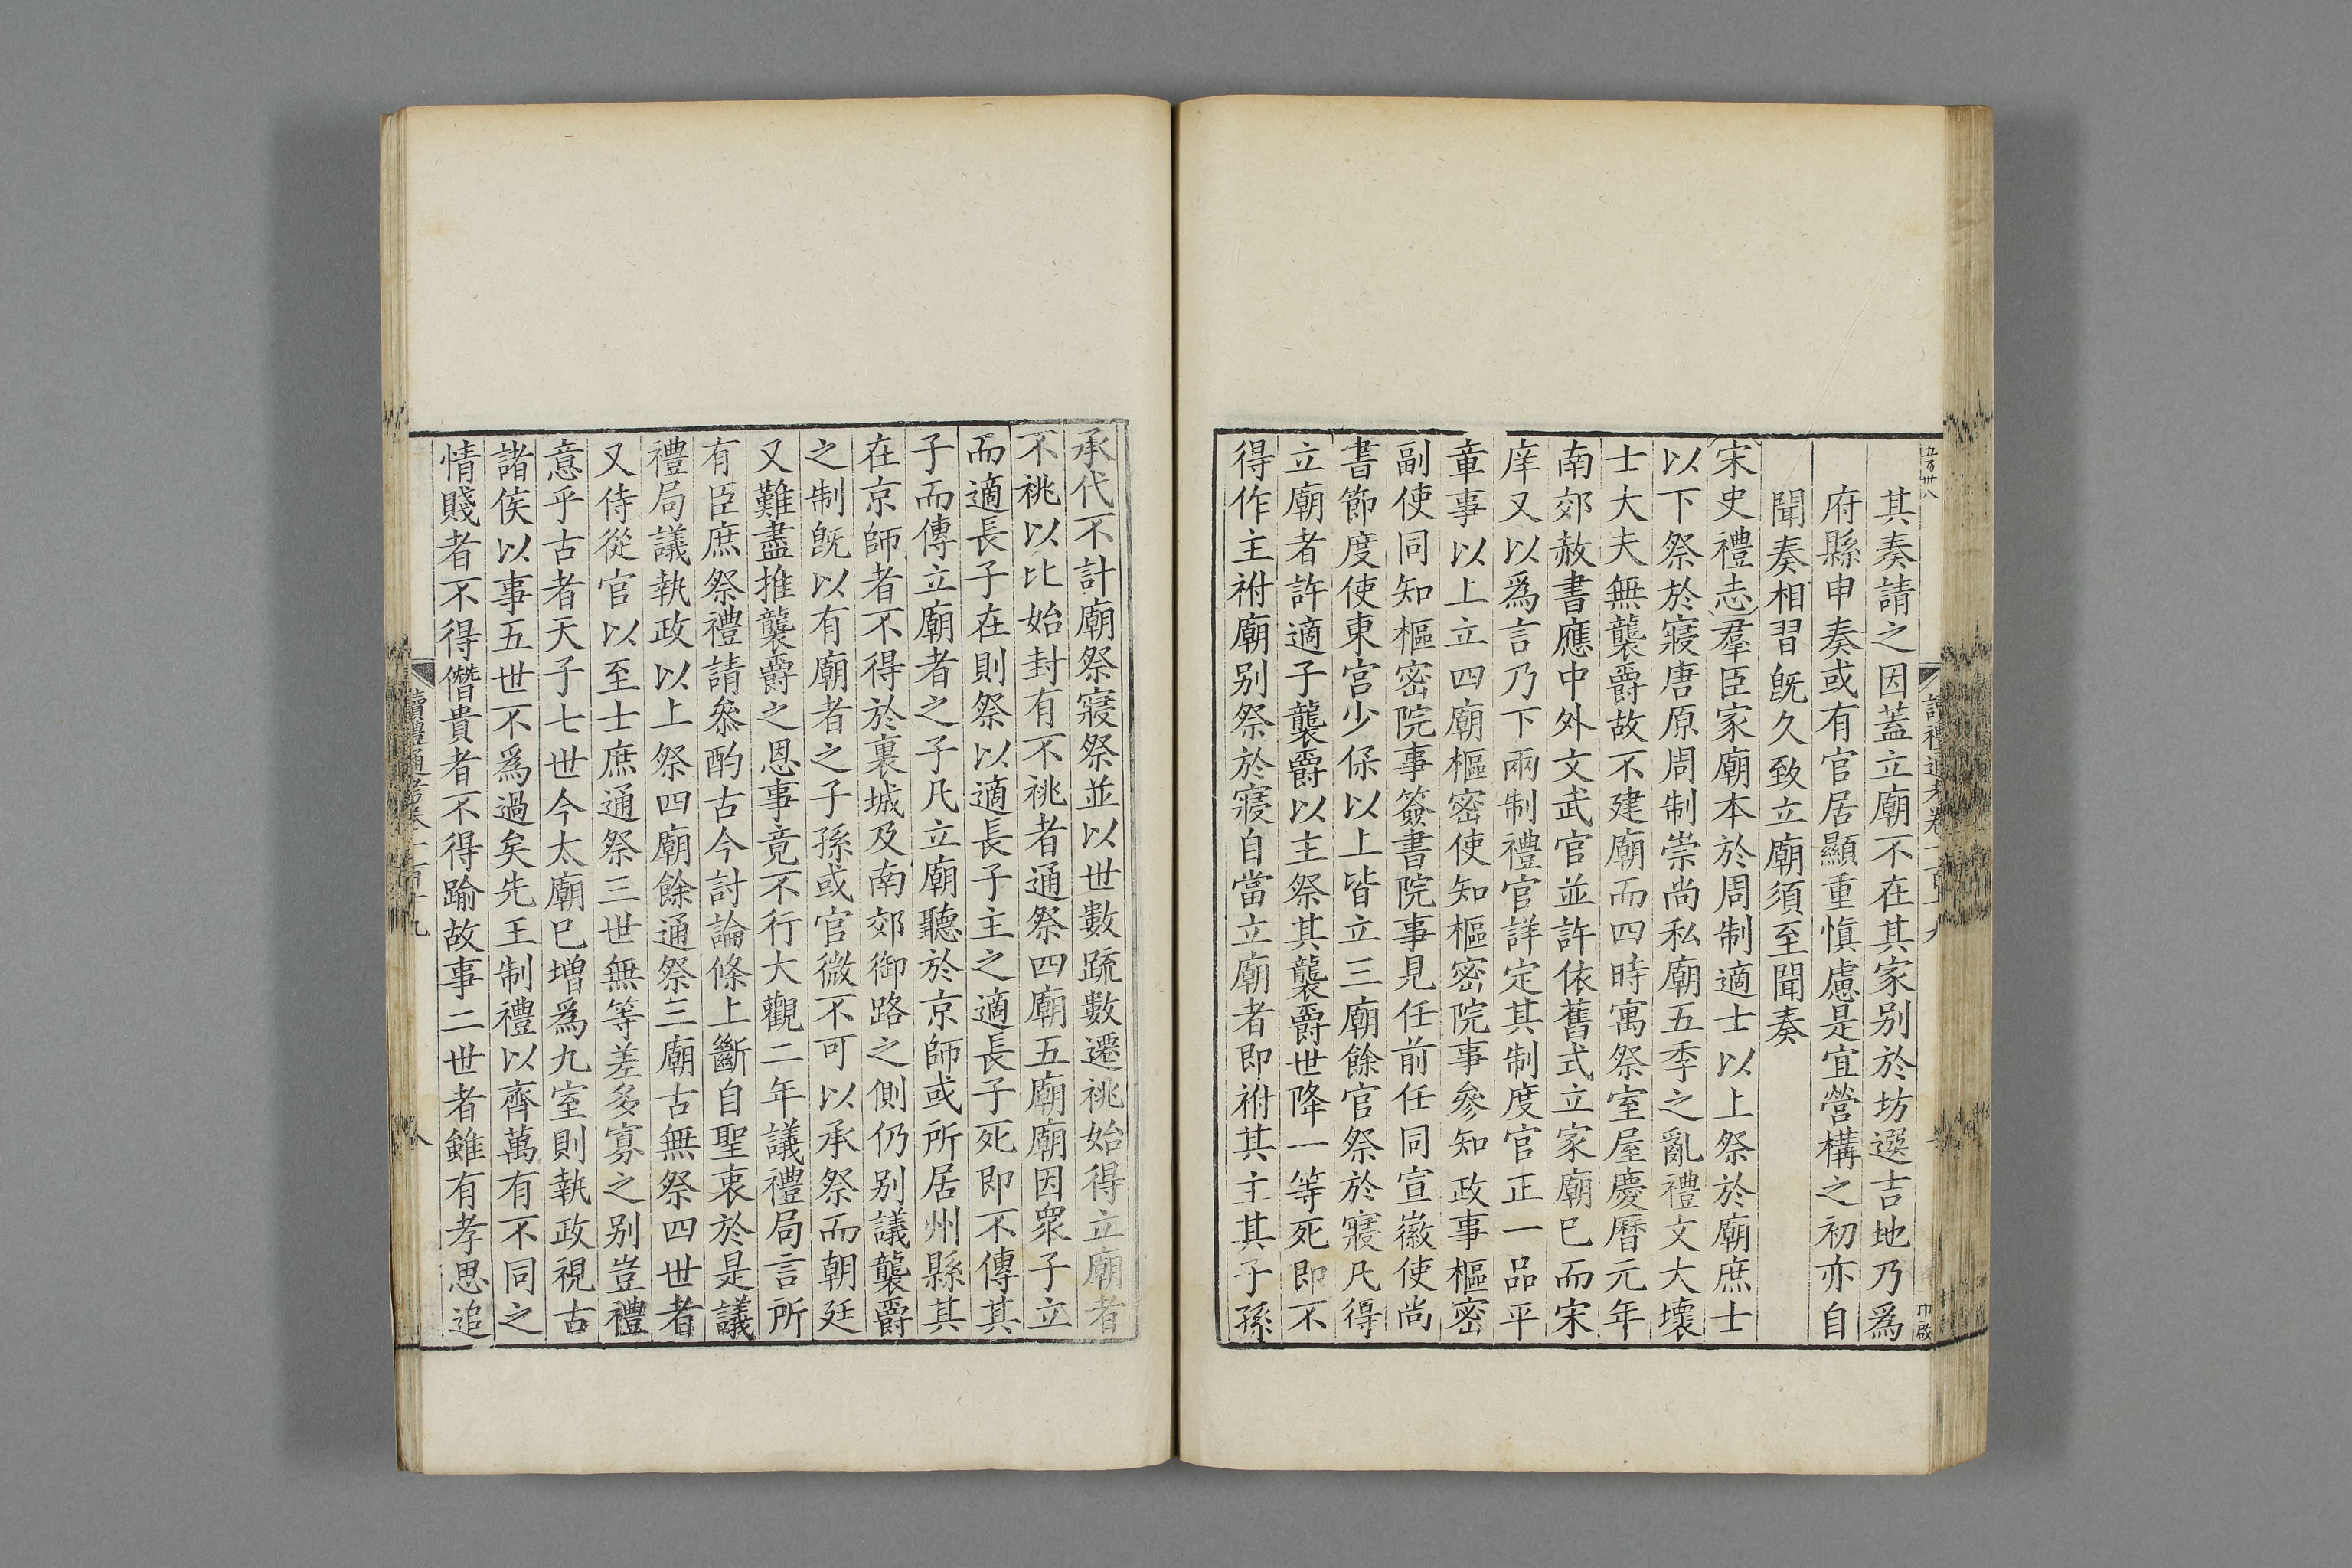 五百卅八
其奏請之因蓋立廟不在其家别於坊選吉地乃爲
府縣申奏或有官居顯重慎慮是宜營構之初亦自
聞奏相習旣久致立廟須至聞奏
宋史禮志羣臣家廟本於周制適士以上祭於廟庶士
以下祭於寢唐原周制崇尚私廟五季之亂禮文大壞
士大夫無襲爵故不建廟而四時寓祭室屋慶曆元年
南郊赦書應中外文武官並許依舊式立家廟已而宋
庠又以爲言乃下兩制禮官詳定其制度官正一品平
章事以上立四廟樞密使知樞密院事參知政事樞密
副使同知樞密院事簽書院事見任前任同宣徽使尚
書節度使東宮少保以上皆立三廟餘官祭於寢凡得
立廟者許適子襲爵以主祭其襲爵世降一等死即不
得作主祔廟别祭於寢自當立廟者即祔其主其子孫
承代不計廟祭寢祭並以世數疏數遷祧始得立廟者
不祧以比始封有不祧者通祭四廟五廟廟因衆子立
而適長子在則祭以適長子主之適長子死即不傳其
子而傳立廟者之子凡立廟聽於京師或所居州縣其
在京師者不得於裏城及南郊御路之側仍别議襲爵
之制旣以有廟者之子孫或官微不可以承祭而朝廷
又難盡推襲爵之恩事竟不行大觀二年議禮局言所
有臣庶祭禮請叅酌古今討論條上斷自聖衷於是議
禮局議執政以上祭四廟餘通祭三廟古無祭四世者
又侍從官以至士庶通祭三世無等差多寡之别豈禮
意乎古者天子七世今太廟已增爲九室則執政視古
諸侯以事五世不爲過矣先王制禮以齊萬有不同之
情賤者不得僭貴者不得踰故事二世者雖有孝思追
讀禮通考卷一百十九
八